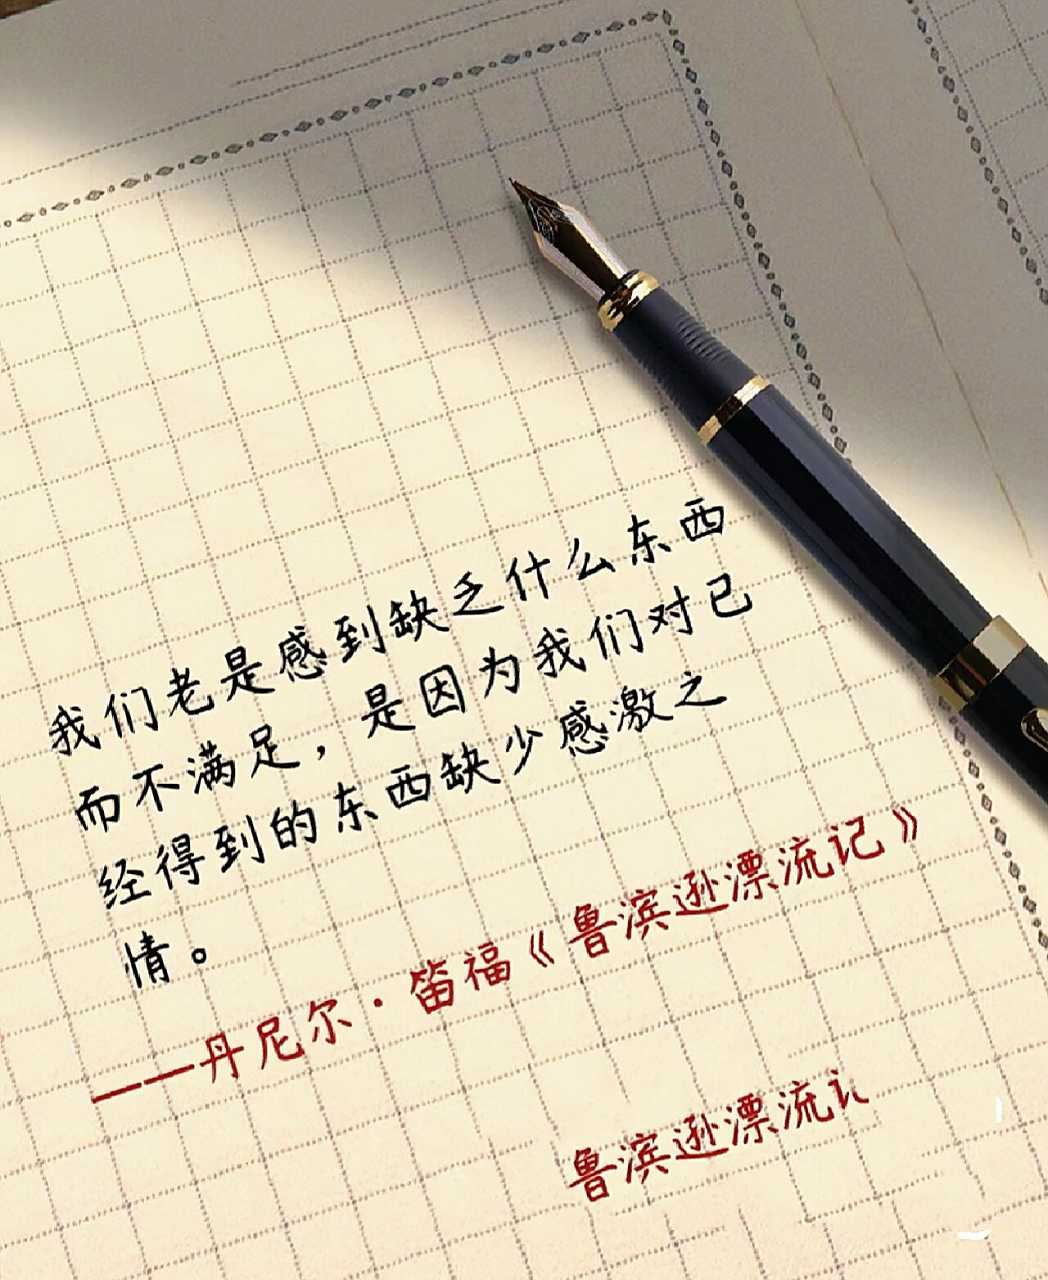 我们老是感到缺乏什么东西
而不满足，是因为我们对已
经得到的东西缺少感激之
情。
——丹尼尔·笛福《鲁滨逊漂流记》
鲁滨逊漂流讠